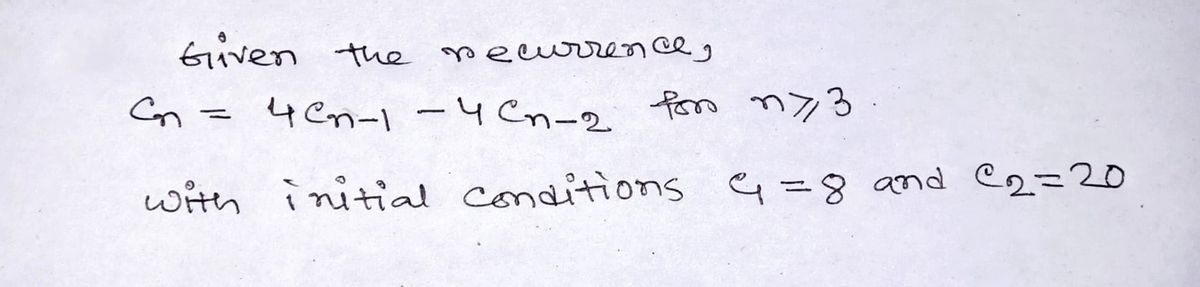 Given the recurrence,
Cn = 4Cn-1 - 4Cn-2 for n⩾3.
with initial conditions C1 = 8 and C2=20